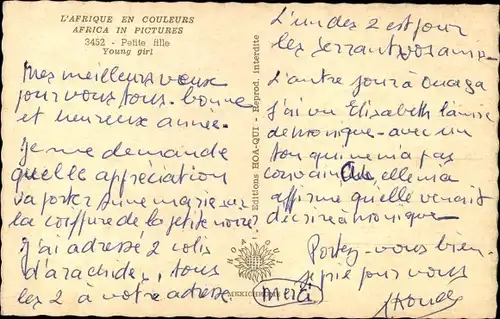 L'AFRIQUE EN COULEURS
AFRICA IN PICTURES
3452 - Petite fille
Young girl
Mes meilleurs voeux
pour vous tous. bonne
et heureuse année.
Je me demande
quelle appréciation
va porter Anne marie sur
la coiffure de la petite noire?
J'ai adressé 2 colis
d'arachides, tous
les 2 à votre adresse.
Editions HOA-QUI - Reprod. interdite
HOA QUI
MEXICHROME
L'un des 2 est pour
les Serrant vos amis.
L'autre jour à Ouaga
J'ai vu Elisabeth l'amie
de monique - avec un
ton qui ne m'a pas
convaincu, elle m'a
affirmé qu'elle venait
d'écrire à monique
Portez-vous bien.
Je prie pour vous
Merci